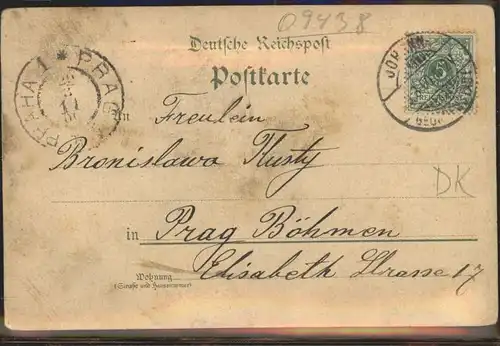 09438
Deutsche Reichspost
Postkarte
PRAHA 1 * PRAG
5
An
Freulein
Bronislawa Kusty
DK
in Prag Böhmen
Wohnung
(Straße und Hausnummer)
Elisabeth Strasse 17